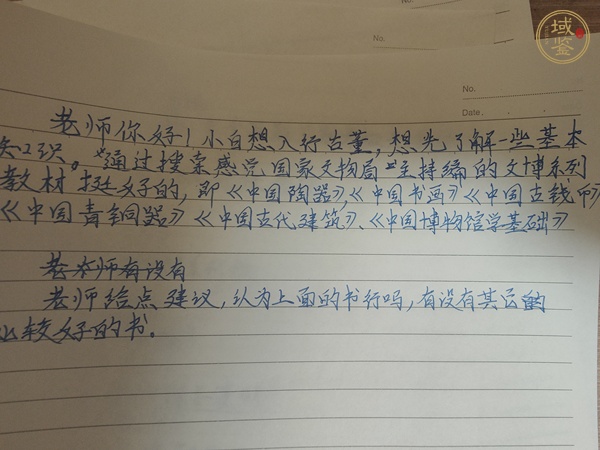 No.
域鉴
No.
Date.
老师你好！小白想入行古董，想先了解一些基本
知识。"通过搜索感觉国家文物局"主持编的文博系列
教材挺好的，即《中国陶器》，《中国书画》《中国古钱币》
《中国青铜器》《中国古代建筑》、《中国博物馆学基础》
老本师有没有
老师给点建议，认为上面的书行吗，有没有其它的
比较好的书。